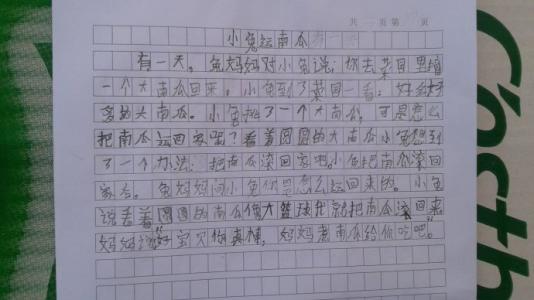 共 页第 页
小兔运南瓜
有一天，兔妈妈对小兔说：你去菜园里
一个大南瓜回来。小兔到了菜园一看：好
多的大南瓜。小兔挑了一个大南瓜，可是怎么
把南瓜运回家呢？看着圆圆的大南瓜小兔想到
了一个办法：把南瓜滚回家吧。小兔把南瓜滚回
家去。兔妈妈问小兔你是怎么运回来的。小兔
说看着圆圆的南瓜像大篮球我就把南瓜滚回来
妈妈说"好宝贝你真棒，妈妈煮南瓜给你吃吧。"
Costh